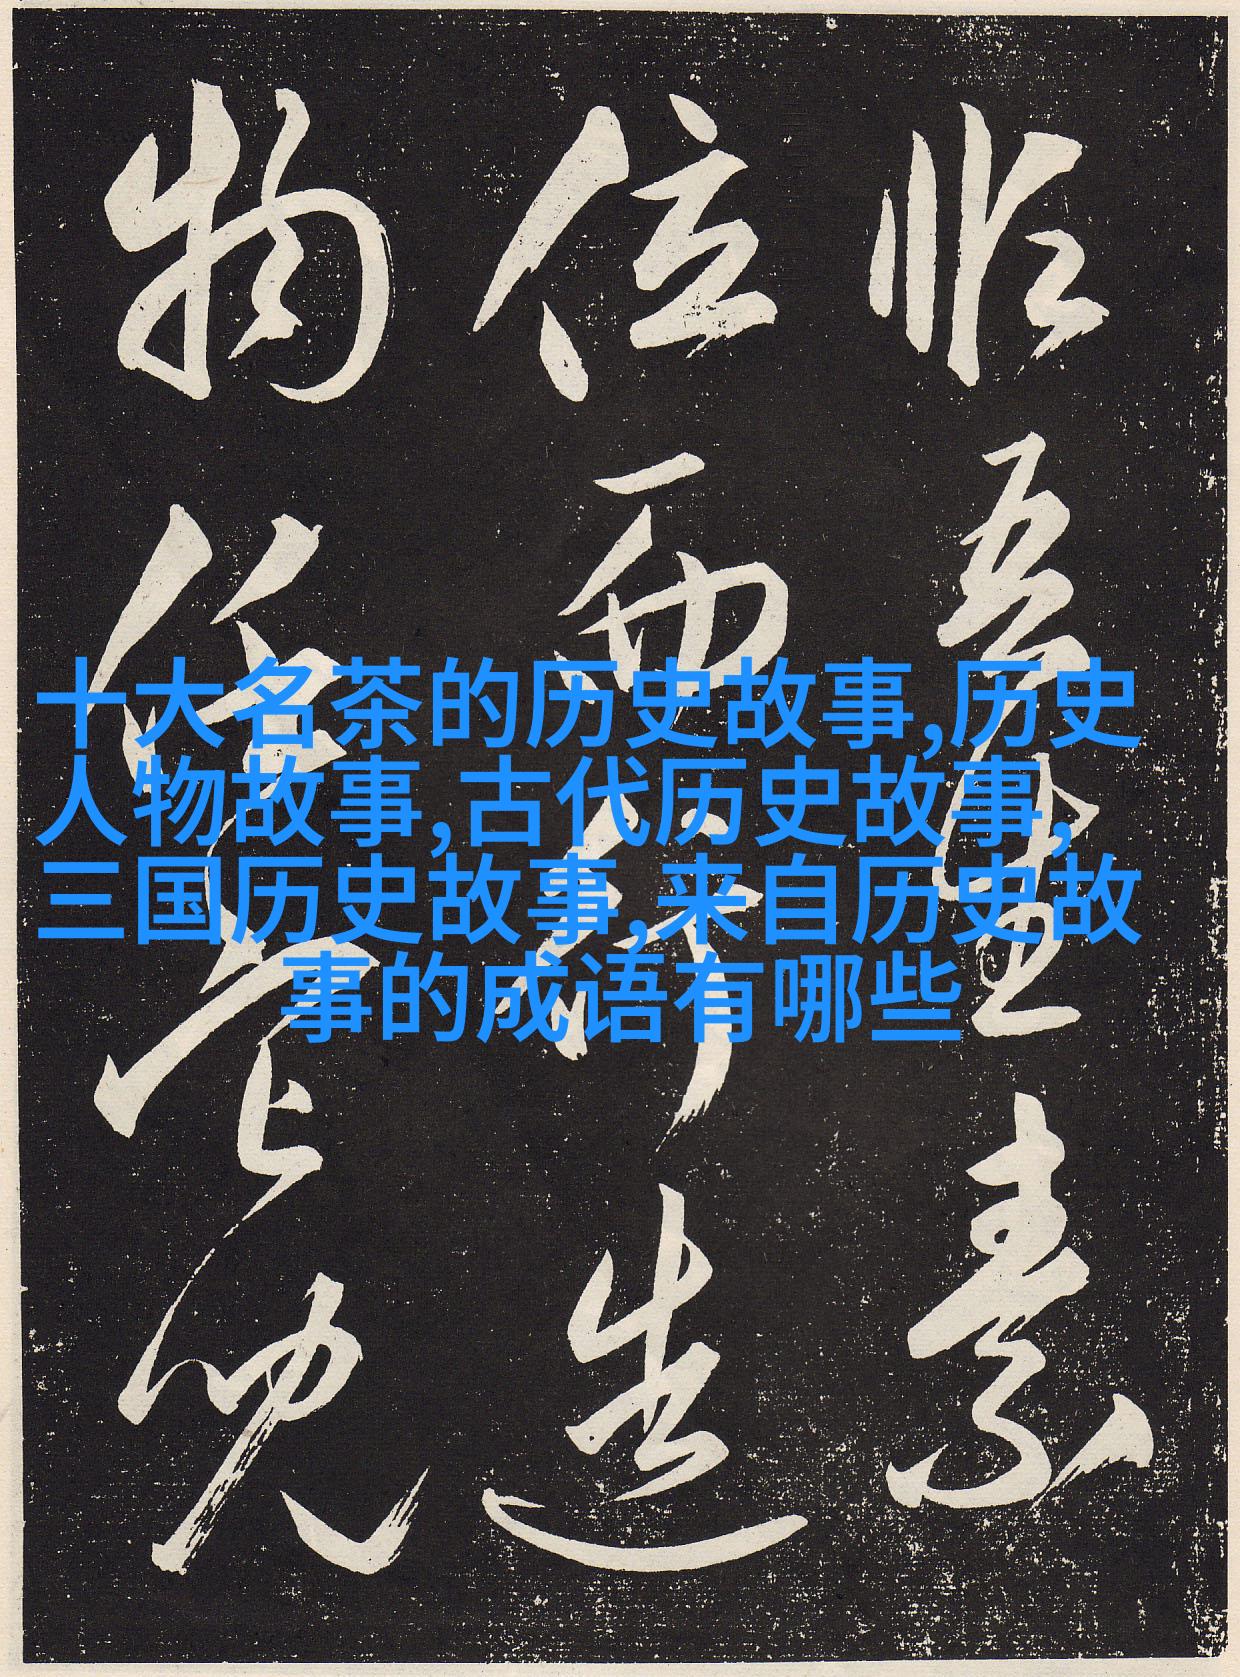 十大名茶的历史故事,历史
人物故事,古代历史故事,
三国历史故事,来自历史故
事的成语有哪些
吾 素
位而行造
物